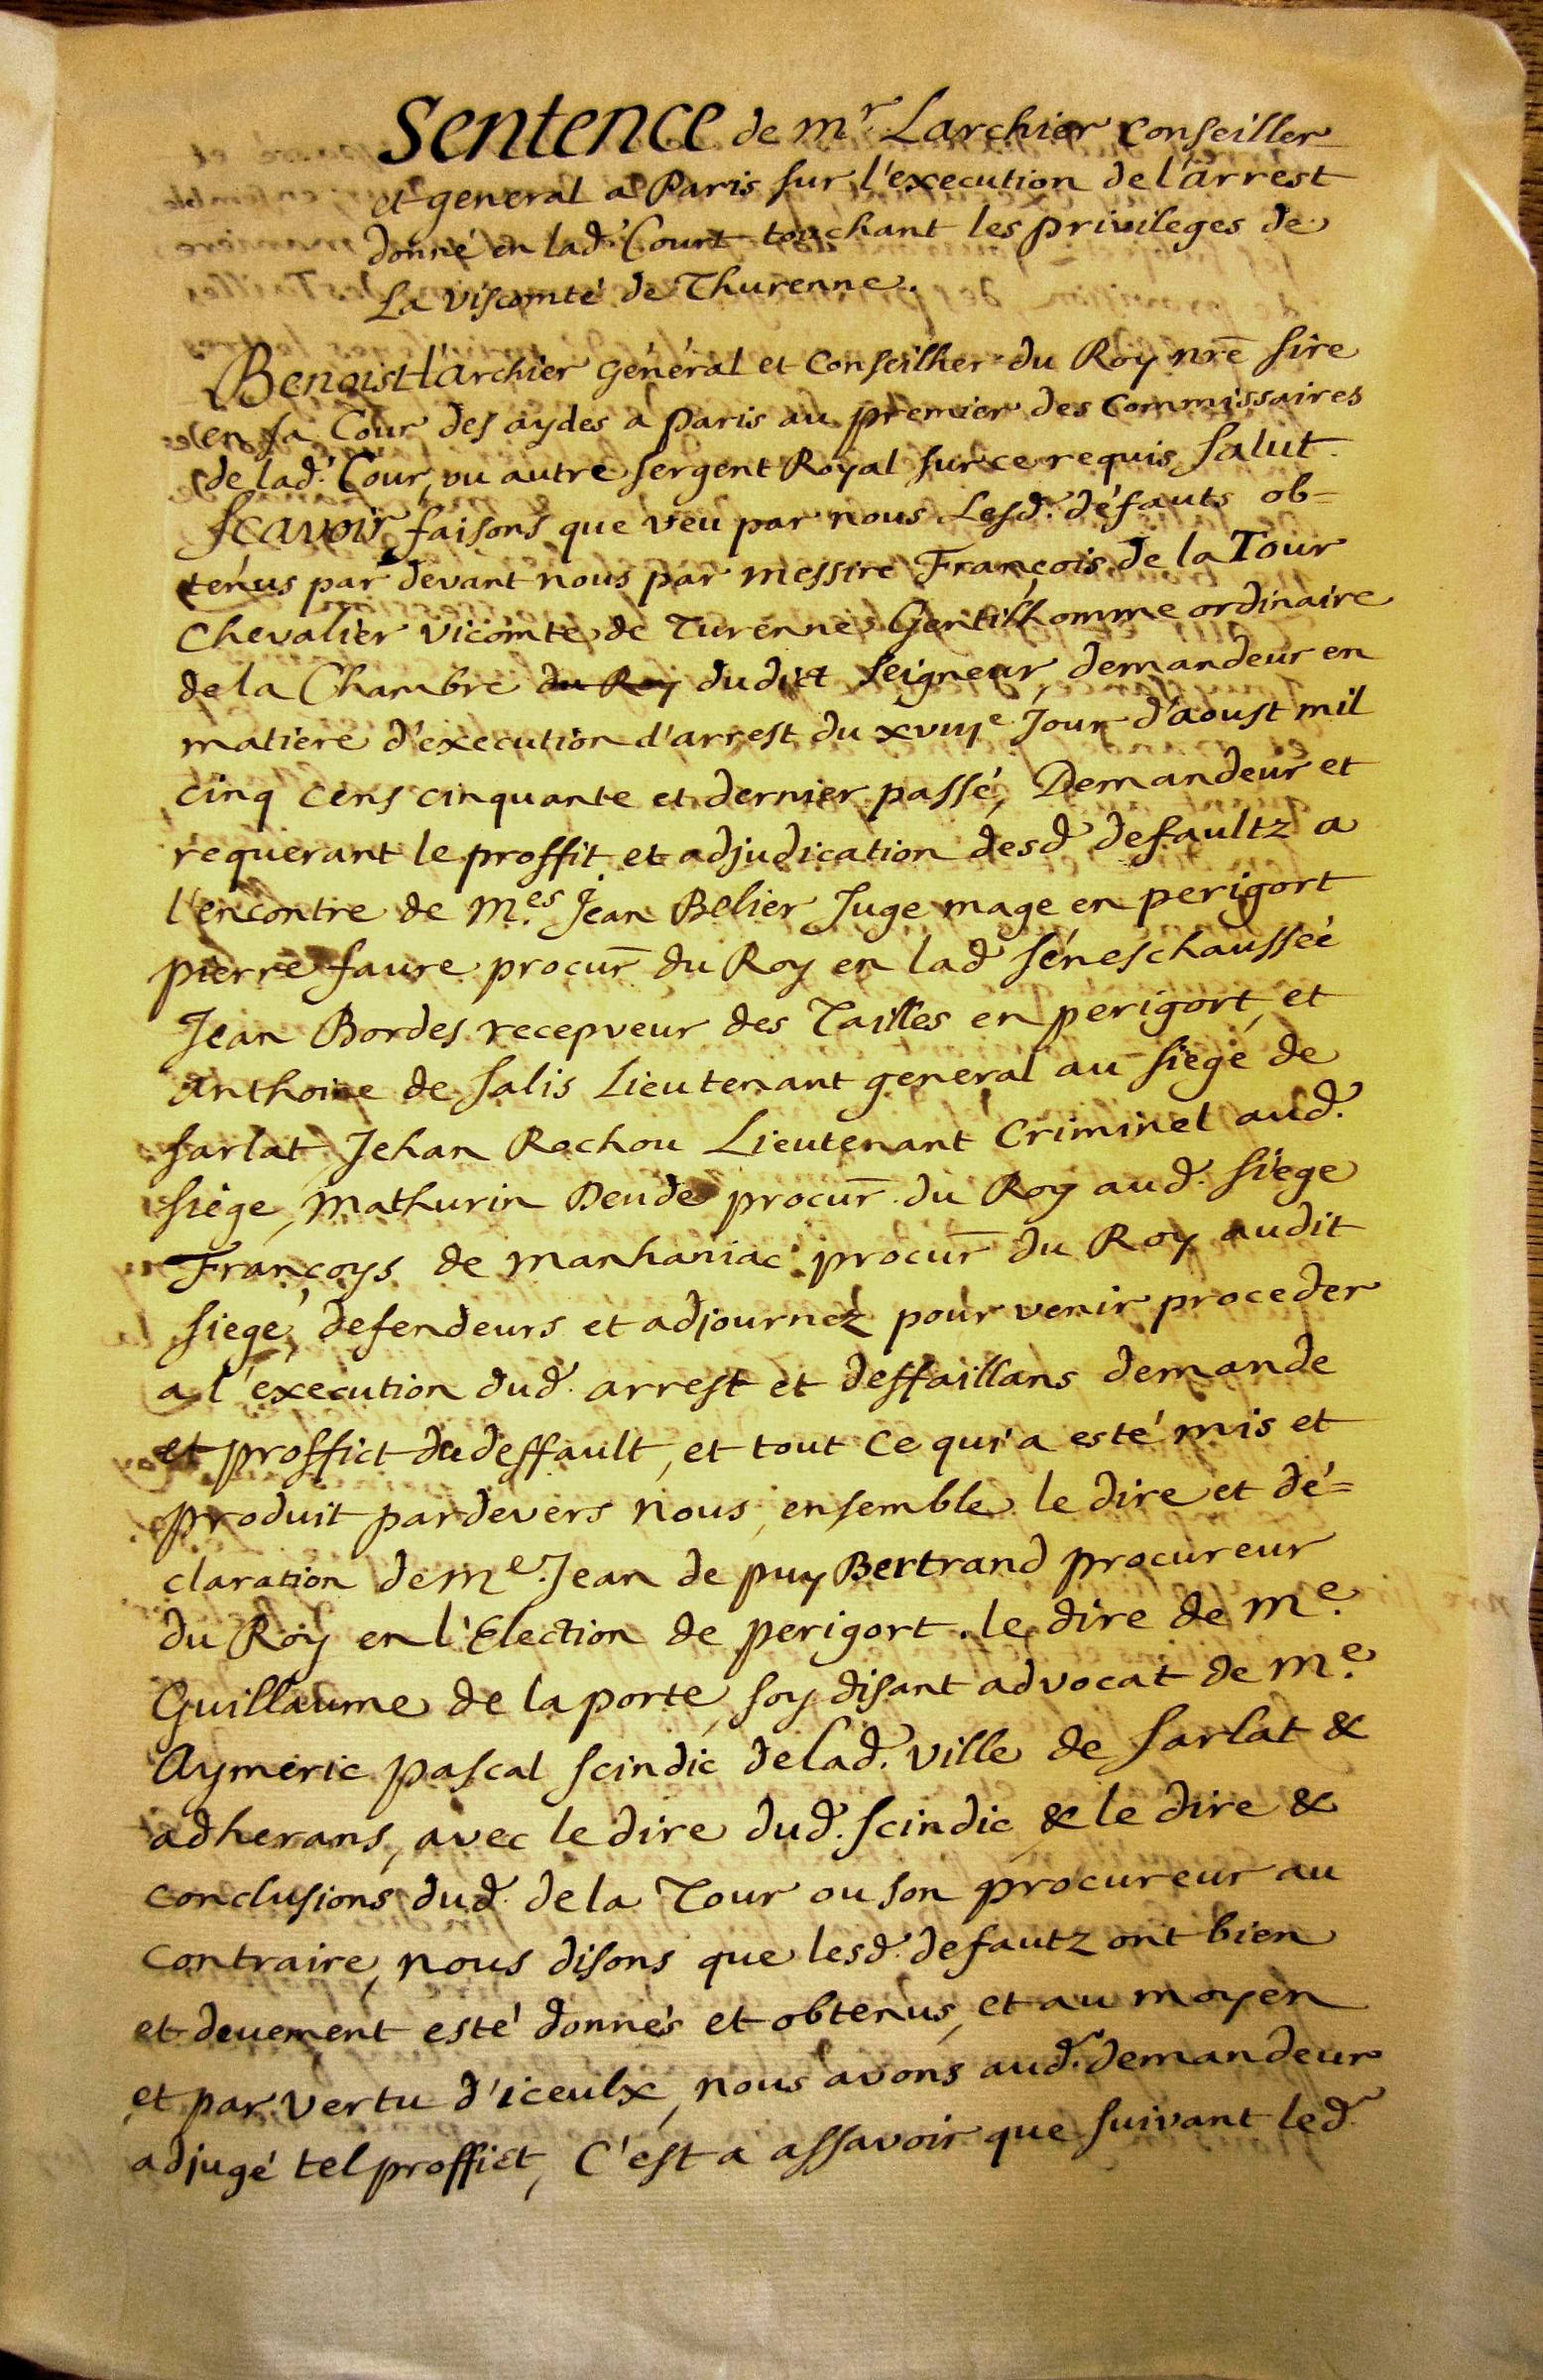 Sentence de mr. Larchier Conseiller
et general a Paris sur l'execution de l'arrest
donné en lad. Court touchant les privileges de
La viscomté de Thurenne.
Benoist l'archier général et Conseilher du Roy nrē sire
en sa Cour des aydes a paris au premier des Commissaires
de lad. Cour, ou autre sergent Royal sur ce requis, salut.
scavoir faisons que veu par nous Lesd. défauts ob=
tenus par devant nous par messire François de la Tour
chevalier vicomte de Turenne Gentilhomme ordinaire
de la Chambre du Roy dudict seigneur, demandeur en
matiere d'execution d'arrest du xviije Jour d'aoust mil
cinq cens cinquante et dernier passé, Demandeur et
requerant le proffit et adjudication desd defaultz a
l'encontre de M.es Jean Belier Juge mage en perigort
pierre faure procur̄ du Roy en lad séneschaussée
Jean Bordes recepveur des Tailles en perigort, et
anthoine de salis Lieutenant general au siege de
sarlat, Jehan Rochou Lieutenant Criminel aud.
siége, mathurin Dende procur̄ du Roy aud. siege
Françoys de manhaniac procur̄ du Roy audit
siege, defendeurs et adjournez pour venir proceder
a l'execution dud. arrest et deffaillans demande
et proffict du deffault, et tout ce qui a esté mis et
produit pardevers nous, ensemble le dire et dé=
claration de me. Jean de puy Bertrand procureur
du Roy en l'Election de perigort. le dire de me.
Guillaume de la porte, soy disant advocat de me.
Aymeric pascal scindic de lad. ville de sarlat &
adherans, avec le dire dud. scindic & le dire &
conclusions dud. de la Tour ou son procureur au
contraire, nous disons que lesd. defautz ont bien
et deuement esté donnés et obtenus, et au moyen
et par vertu d'iceulx, nous avons aud. demandeur
adjugé tel proffict, C'est a assavoir que suivant led.